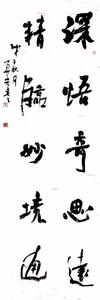 深悟奇思遠
精臨妙境通